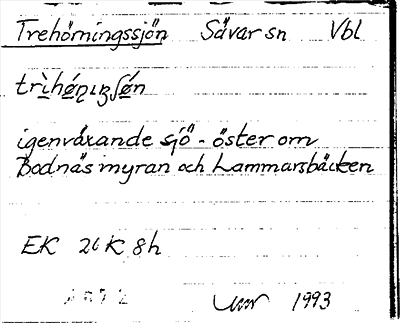 Trehörningssjön Sävar sn Vbl
igenväxande sjö - öster om
Bodnäsmyran och Lammarsbäcken
EK 20K 8h
1993